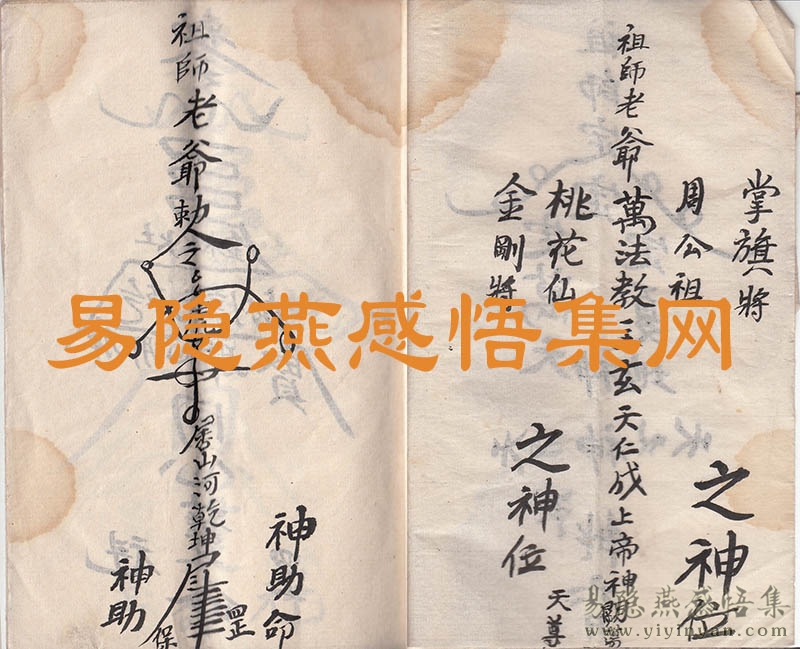 掌旗將
周公祖
之神位
祖師老爺萬法教主玄天仁威上帝神
天尊
桃花仙
金剛將
之神位
祖師老爺勅令
山河乾坤
神助命
罡
神助
保
易隐燕感悟集网
易隐燕感悟集
www.yiyinyan.com